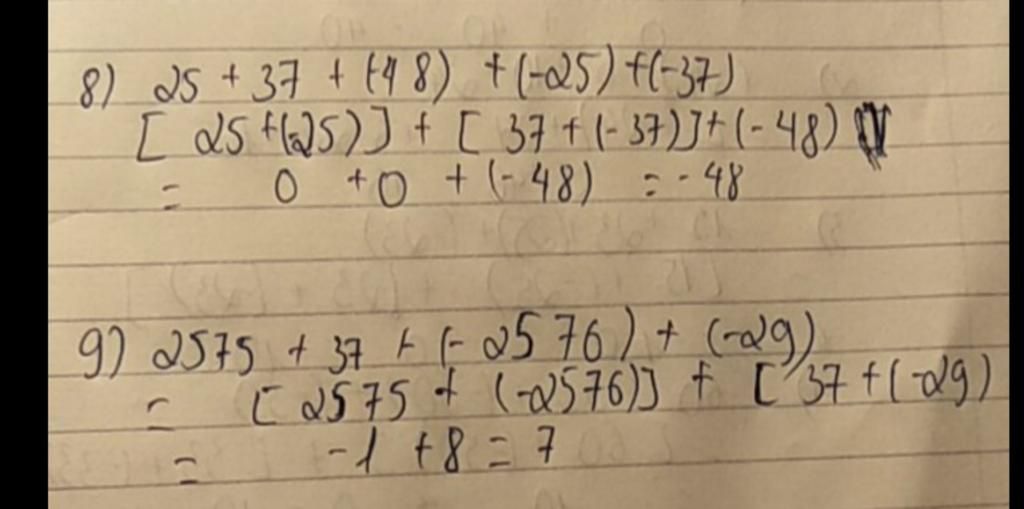 8) 25 + 37 + (-48) + (-25) + (-37)
[ 25 + (-25)] + [ 37 + (-37)] + (-48)
= 0 + 0 + (-48) = -48
9) 2575 + 37 + (-2576) + (-29)
= [ 2575 + (-2576)] + [ 37 + (-29)
= -1 + 8 = 7